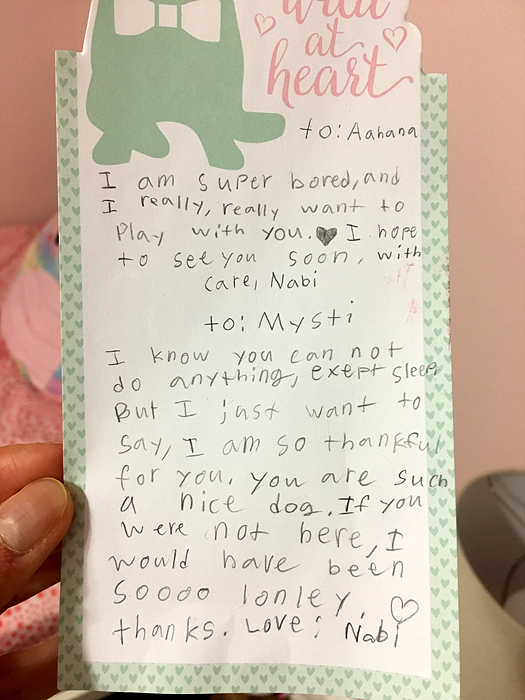 wild
at
heart
to: Aahana
I am super bored, and
I really, really want to
Play with you. I hope
to see you soon, with
care, Nabi
to: Mysti
I know you can not
do anything, exept sleep
But I just want to
say, I am so thankful
for you. you are such
a nice dog. If you
were not here, I
would have been
soooo lonley.
thanks. Love; Nabi